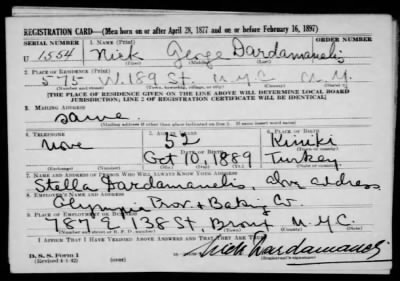 REGISTRATION CARD—(Men born on or after April 28, 1877 and on or before February 16, 1897)
SERIAL NUMBER 1. NAME (Print)
U 1554 Nick George Dardamanelis
(First) (Middle) (Last)
2. PLACE OF RESIDENCE (Print)
575 W. 189 St. N.Y.C. N.Y.
(Number and street) (Town, township, village, or city) (County) (State)
[THE PLACE OF RESIDENCE GIVEN ON THE LINE ABOVE WILL DETERMINE LOCAL BOARD
JURISDICTION; LINE 2 OF REGISTRATION CERTIFICATE WILL BE IDENTICAL]
3. MAILING ADDRESS
same
[Mailing address if other than place indicated on line 2. If same insert word same]
4. TELEPHONE 5. AGE IN YEARS 6. PLACE OF BIRTH
None 52
DATE OF BIRTH
Oct 10, 1889 Turkey
(Exchange) (Number) (Mo.) (Day) (Yr.) (State or country)
7. NAME AND ADDRESS OF PERSON WHO WILL ALWAYS KNOW YOUR ADDRESS
Stella Dardamanelis, above address
8. EMPLOYER'S NAME AND ADDRESS
Olympia Prov. + Baking Co.
9. PLACE OF EMPLOYMENT OR BUSINESS
787 E 138 St, Bronx N.Y.C.
(Number and street or R. F. D. number) (Town) (County) (State)
I AFFIRM THAT I HAVE VERIFIED ABOVE ANSWERS AND THAT THEY ARE TRUE.
D. S. S. Form 1
(Revised 4-1-42) (over) Nick Dardamanelis
(Registrant's signature)